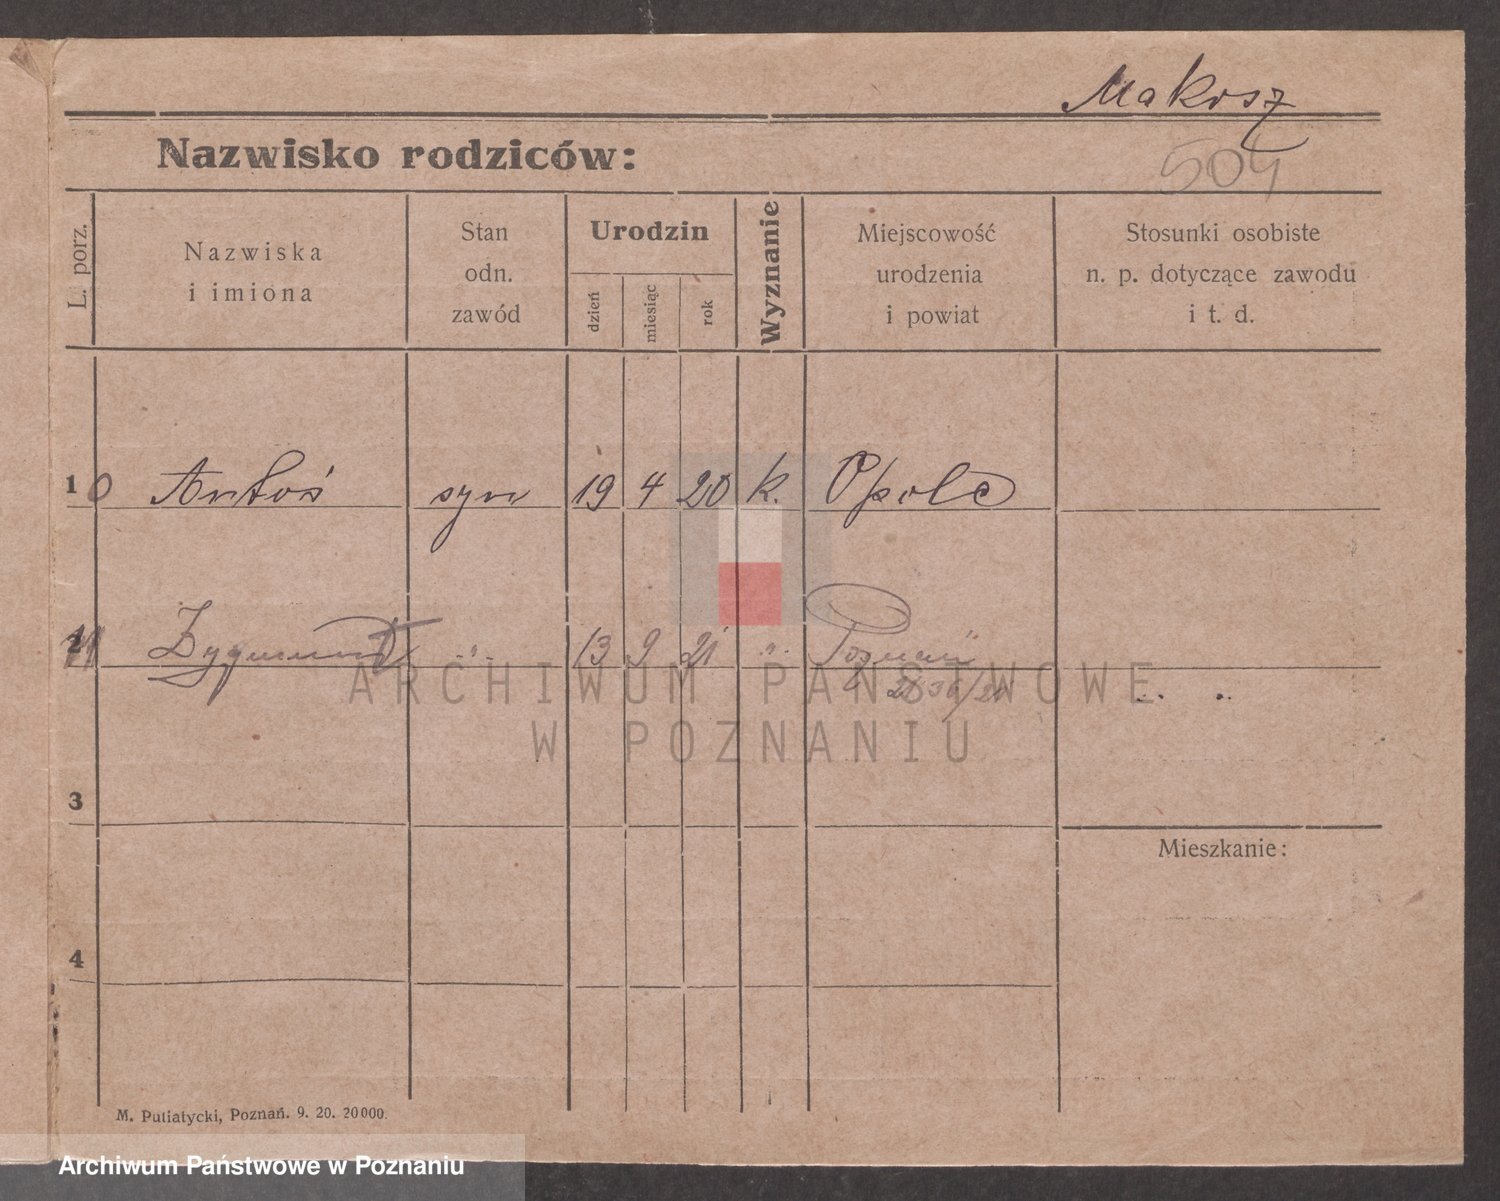 Makosz
Nazwisko rodziców:
504
L. porz.
Nazwiska
i imiona
Stan
odn.
zawód
Urodzin
dzień
miesiąc
rok
Wyznanie
Miejscowość
urodzenia
i powiat
Stosunki osobiste
n. p. dotyczące zawodu
i t. d.
1 0 Antoś syn 19 4 20 k. Opole
2 Zygmunt " 13 9 21 " Poznań
3
Mieszkanie:
4
M. Putiatycki, Poznań. 9. 20. 20000.
ARCHIWUM PAŃSTWOWE
W POZNANIU
Archiwum Państwowe w Poznaniu